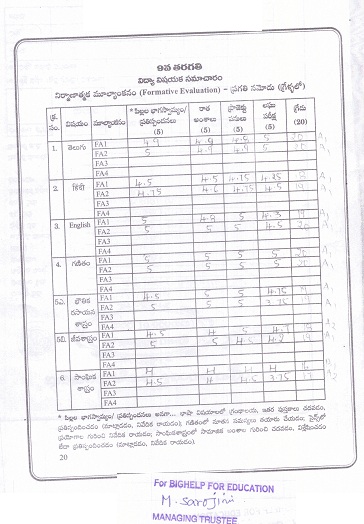 9వ తరగతి
విద్యా విషయక సమాచారం
నిర్మాణాత్మక మూల్యాంకనం (Formative Evaluation) – ప్రగతి నమోదు (గ్రేళ్ళలో)
క్ర. సం. విషయం మూల్యాంకనం * పిల్లల భాగస్వామ్యం/ ప్రతిస్పందనలు (5) రాత అంశాలు (5) ప్రాజెక్టు పనులు (5) లఘు పరీక్ష (5) గ్రేడు (20)
1. తెలుగు FA1 4.9 4.9 5 20
FA2 5 4.9 4.9 5 20
FA3
FA4
2. హిందీ FA1 4.5 4.5 4.75 4.25 18
FA2 4.75 4.6 4.75 4.5 19
FA3
FA4
3. English FA1 5 4.8 5 4.3 19
FA2 5 5 5 4.5 20
FA3
FA4
4. గణితం FA1 5 5 5 5 20
FA2 5 5 5 5 20
FA3
FA4
5ఎ. భౌతిక రసాయన శాస్త్రం FA1 4.5 5 5 4.75
FA2 5 5 5 3.75
FA3
FA4
5బి. జీవశాస్త్రం FA1 4.5 4 5 19
FA2 5 5 4.5 19
FA3
FA4
6. సాంఘిక శాస్త్రం FA1 4 4
FA2 4.5 4 4.5 3.75
FA3
FA4
* పిల్లల భాగస్వామ్యం/ ప్రతిస్పందనలు అనగా... భాషా విషయాలలో గ్రంథాలయ, ఇతర పుస్తకాలు చదవడం,
ప్రతిస్పందించడం (మాట్లాడడం, నివేదిక రాయడం); గణితంలో నూతన సమస్యలు తయారు చేయడం; సైన్స్‌లో
ప్రయోగాల గురించి నివేదిక రాయడం; సాంఘికశాస్త్రంలో సామాజిక అంశాల గురించి చదవడం, విశ్లేషించడం
లేదా ప్రతిస్పందించడం (మాట్లాడడం, నివేదిక రాయడం).
20
For BIGHELP FOR EDUCATION
M. Sarojini
MANAGING TRUSTEE